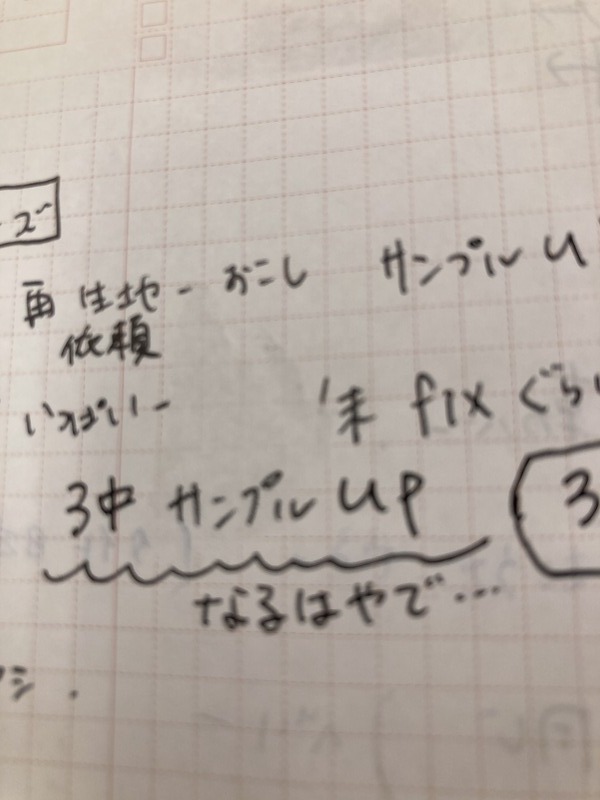 ズ
再 生地 - おこし サンプル U
依頼
いっぱいー 末 fix ぐら
3中 サンプル UP 3
なるはやで…